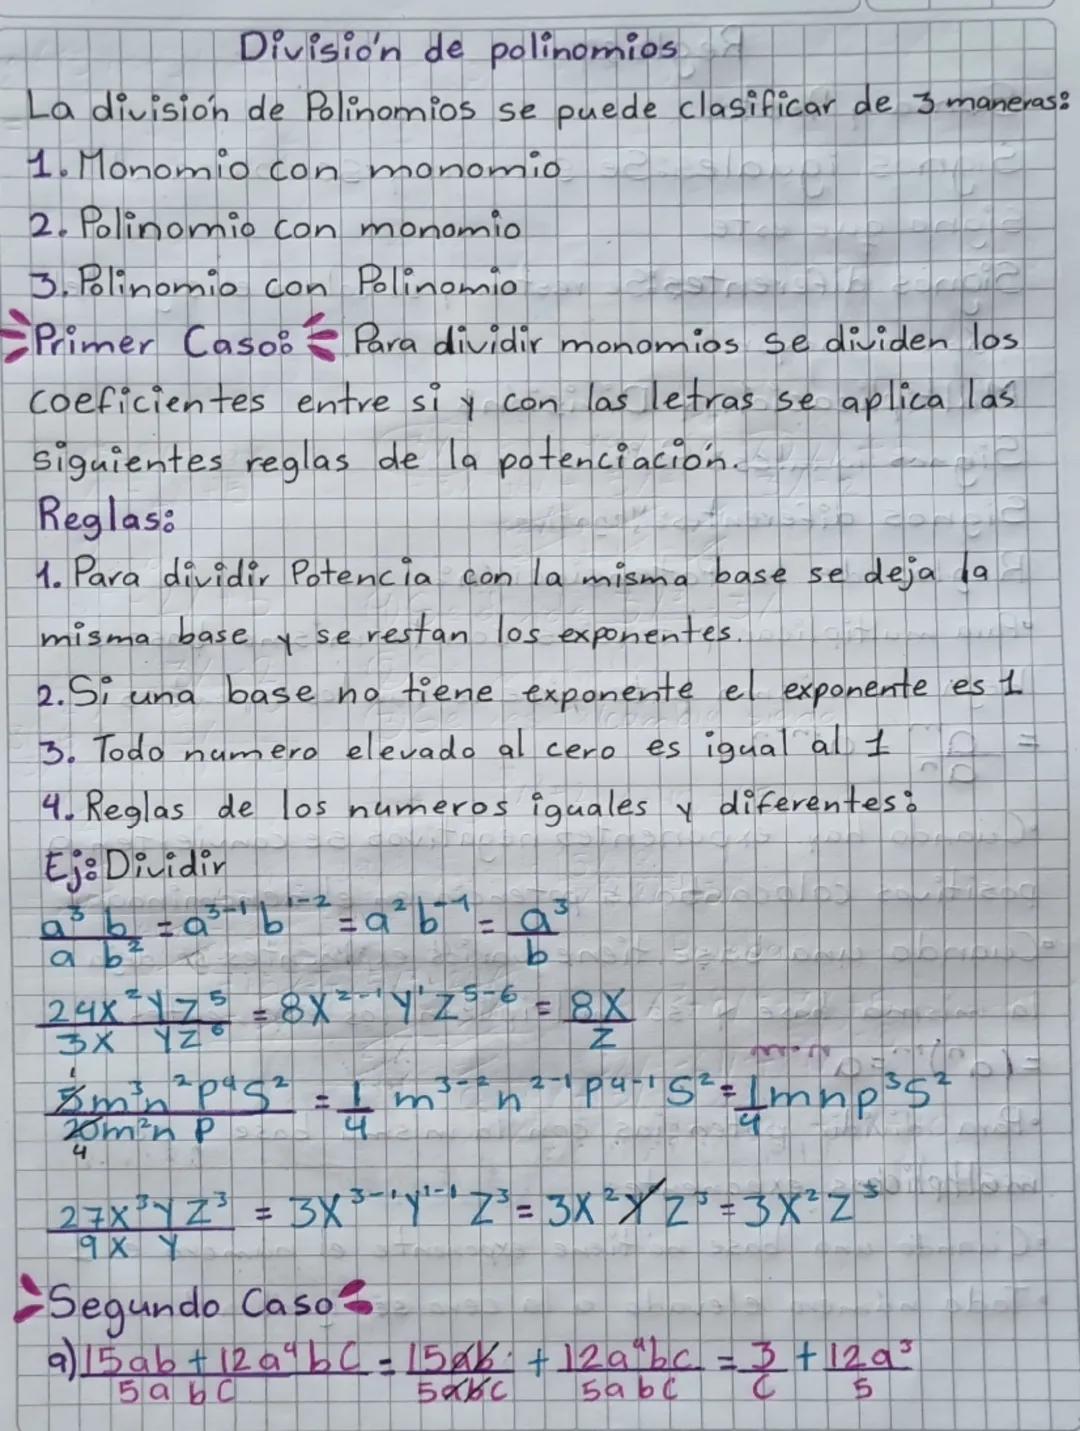 División de polinomios
La división de Polinomios se puede clasificar de 3 maneras:
1. Monomio con monomio
2. Polinomio con monomio
3. Polinomio con Polinomio
Primer Caso: Para dividir monomios se dividen los
coeficientes entre si y con las letras se aplica las
siguientes reglas de la potenciación.
Reglas:
1. Para dividir Potencia con la misma base se deja la
misma base y se restan los exponentes.
2. Si una base no tiene exponente el exponente es 1
3. Todo numero elevado al cero es igual al 1
4. Reglas de los numeros iguales y diferentes:
Ej: Dividir
a³ b / a b² = a³⁻¹ b¹⁻² = a² b⁻¹ = a³ / b
24x² y z⁵ / 3x y z⁶ = 8x²⁻¹ y¹ z⁵⁻⁶ = 8x / z
5m³n² p⁴ s² / 20m²n p = 1/4 m³⁻² n²⁻¹ p⁴⁻¹ s² = 1/4 mnp³s²
1
4
27x³ y z³ / 9x y = 3x³⁻¹ y¹⁻¹ z³ = 3x² y z³ = 3x² z³
Segundo Caso
a) 15ab + 12a⁴bc / 5abc = 15ab / 5abc + 12a⁴bc / 5abc = 3/c + 12a³ / 5